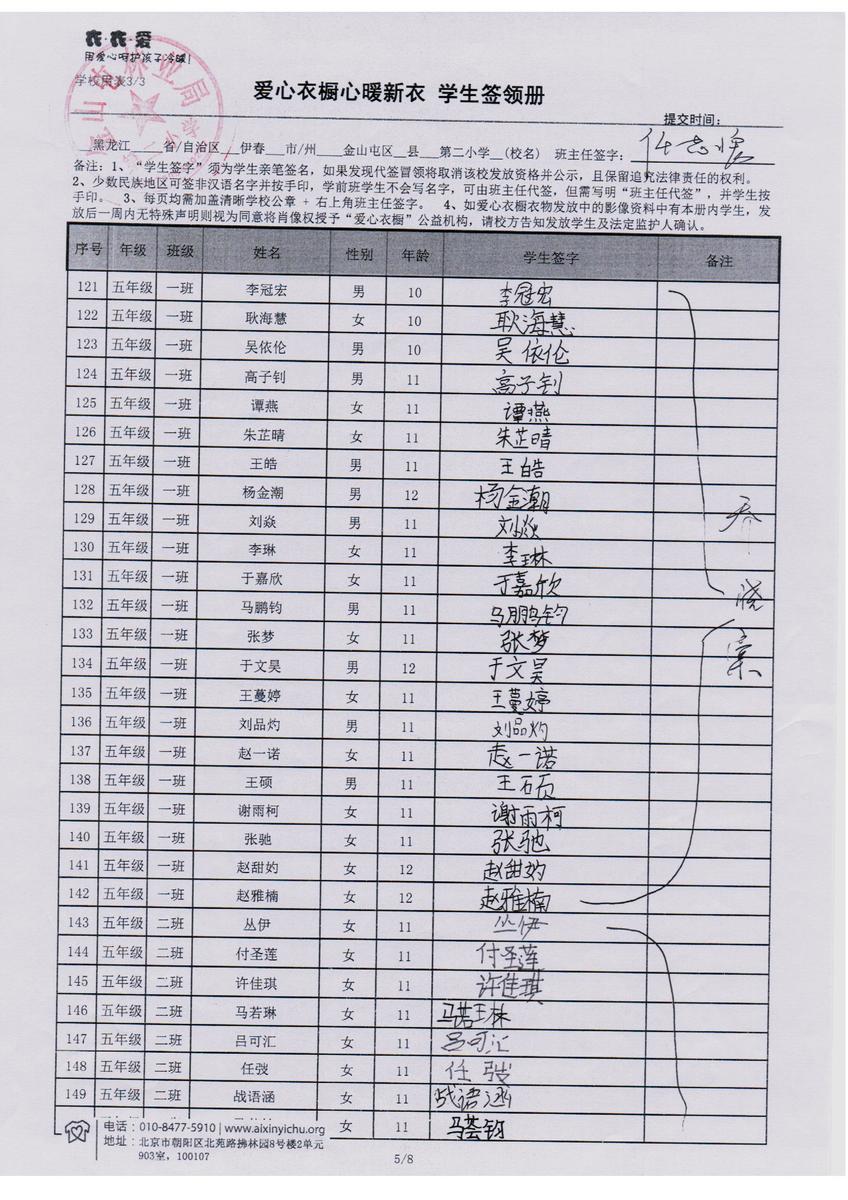 衣·衣·爱
用爱心呵护孩子冷暖!
学校用表3/3
爱心衣橱心暖新衣 学生签领册
提交时间:
黑龙江 省/自治区 伊春 市/州 金山屯区 县 第二小学 (校名) 班主任签字:
备注: 1、“学生签字”须为学生亲笔签名，如果发现代签冒领将取消该校发放资格并公示，且保留追究法律责任的权利。
2、少数民族地区可签非汉语名字并按手印，学前班学生不会写名字，可由班主任代签，但需写明“班主任代签”，并学生按
手印。 3、每页均需加盖清晰学校公章 + 右上角班主任签字。 4、如爱心衣橱衣物发放中的影像资料中有本册内学生，发
放后一周内无特殊声明则视为同意将肖像权授予“爱心衣橱”公益机构，请校方告知发放学生及法定监护人确认。
序号 年级 班级 姓名 性别 年龄 学生签字 备注
121 五年级 一班 李冠宏 男 10 李冠宏
122 五年级 一班 耿海慧 女 10 耿海慧
123 五年级 一班 吴依伦 男 10 吴依伦
124 五年级 一班 高子钊 男 11 高子钊
125 五年级 一班 谭燕 女 11 谭燕
126 五年级 一班 朱芷晴 女 11 朱芷晴
127 五年级 一班 王皓 男 11 王皓
128 五年级 一班 杨金潮 男 12 杨金潮
129 五年级 一班 刘焱 男 11 刘焱
130 五年级 一班 李琳 女 11 李琳
131 五年级 一班 于嘉欣 女 11 于嘉欣
132 五年级 一班 马鹏钧 男 11 马鹏钧
133 五年级 一班 张梦 女 11 张梦
134 五年级 一班 于文昊 男 12 于文昊
135 五年级 一班 王蔓婷 女 11 王蔓婷
136 五年级 一班 刘品灼 男 11 刘品灼
137 五年级 一班 赵一诺 女 11 赵一诺
138 五年级 一班 王硕 男 11 王硕
139 五年级 一班 谢雨柯 女 11 谢雨柯
140 五年级 一班 张驰 女 11 张驰
141 五年级 一班 赵甜妁 女 12 赵甜妁
142 五年级 一班 赵雅楠 女 12 赵雅楠
143 五年级 二班 丛伊 女 11 丛伊
144 五年级 二班 付圣莲 女 11 付圣莲
145 五年级 二班 许佳琪 女 11 许佳琪
146 五年级 二班 马若琳 女 11
147 五年级 二班 吕可汇 女 11 吕可汇
148 五年级 二班 任弢 女 11 任弢
149 五年级 二班 战语涵 女 11 战语涵
女 11 马荟钧
电话: 010-8477-5910 | www.aixinyichu.org
地址: 北京市朝阳区北苑路拂林园8号楼2单元
903室, 100107
5/8